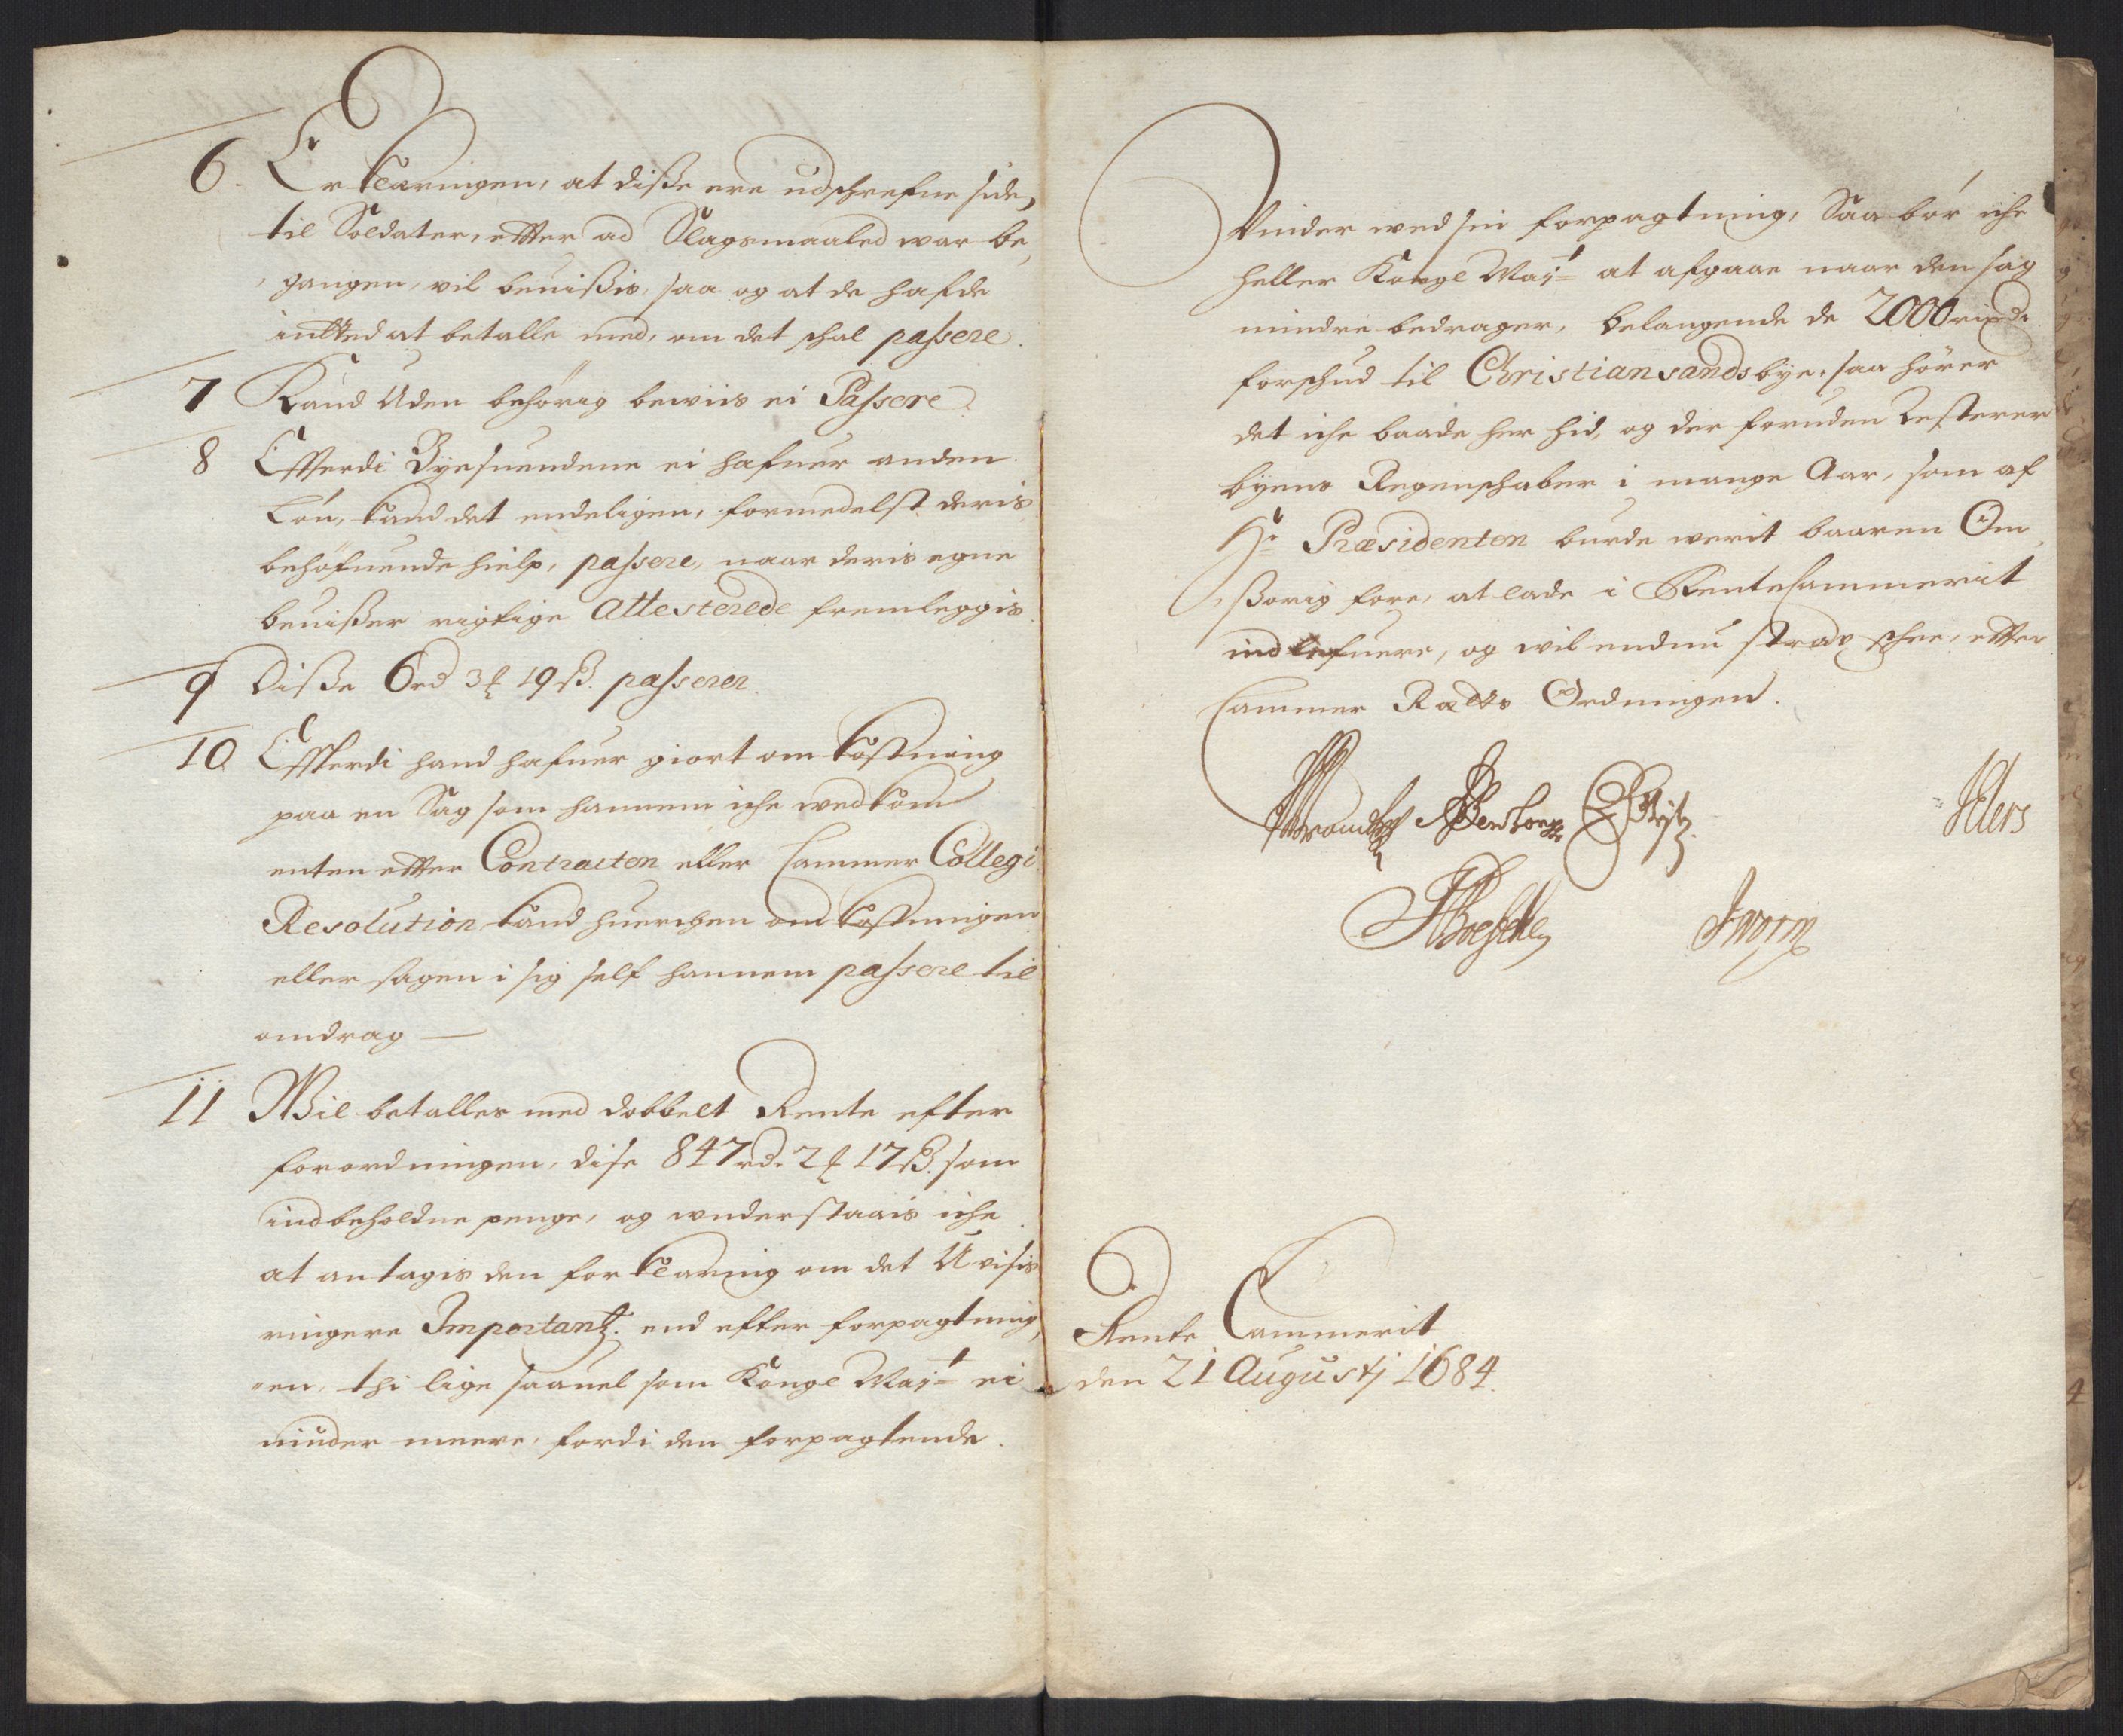 6. Erklæringen, at disse ere udschrefne side,
til Soldater, effter ad Slagsmaaled war be,
gangen, vil beuissis, saa og at de hafde
inttedat betalle med, om det schal passere.
7 Kand Uden behörig bewiis ei Passere
8 Effterdi Byesuendene ei hafuer anden
Lön, kand det endeligen, formedelst deris
behöfuende hielp, passere, naar deris egne
beuisser rigtige attesterede fremleggis
9 Disse 6rd 3 19 ß. passerer
10 Effterdi hand hafuer giort omkostning
paa en Sag som hannem iche wedkom
enten effter Contracten eller Cammer Collegi
Resolution kand huerchen omkostningen
eller sagen i sig self hannem passere til
omdrag —
11 Wil betalles med dobbelt Rente efter
forordningen, dise 847rd. 2 17 ß. som
indbeholdne penge, og understaais iche
at antagis den forklaring om det Uvisis
ringere Importantz. end efter forpagtning,
en, thi lige saauel som Kongl Maj:t ei
vinder meere, fordi den forpagtende
Vinder wed sin forpagtning, Saa bör iche
heller Kongl Maj:t at afgaae naar den sag
mindre bedrager, belangende de 2000 rixdr
forschud til Christiansands bye, saa hörer
det iche baade her hid, og der foruden Resterer
byens Regenschaber i mange Aar, som af
Hr Præsidenten burde werit baaren Om
ßorig fore, at lade i RenteCammerit
indlefuere, og wil endnu strax schee, effter
Cammer Raetts Ordningen.
JWorm
Rente Cammerit
den 21 Augustj 1684.